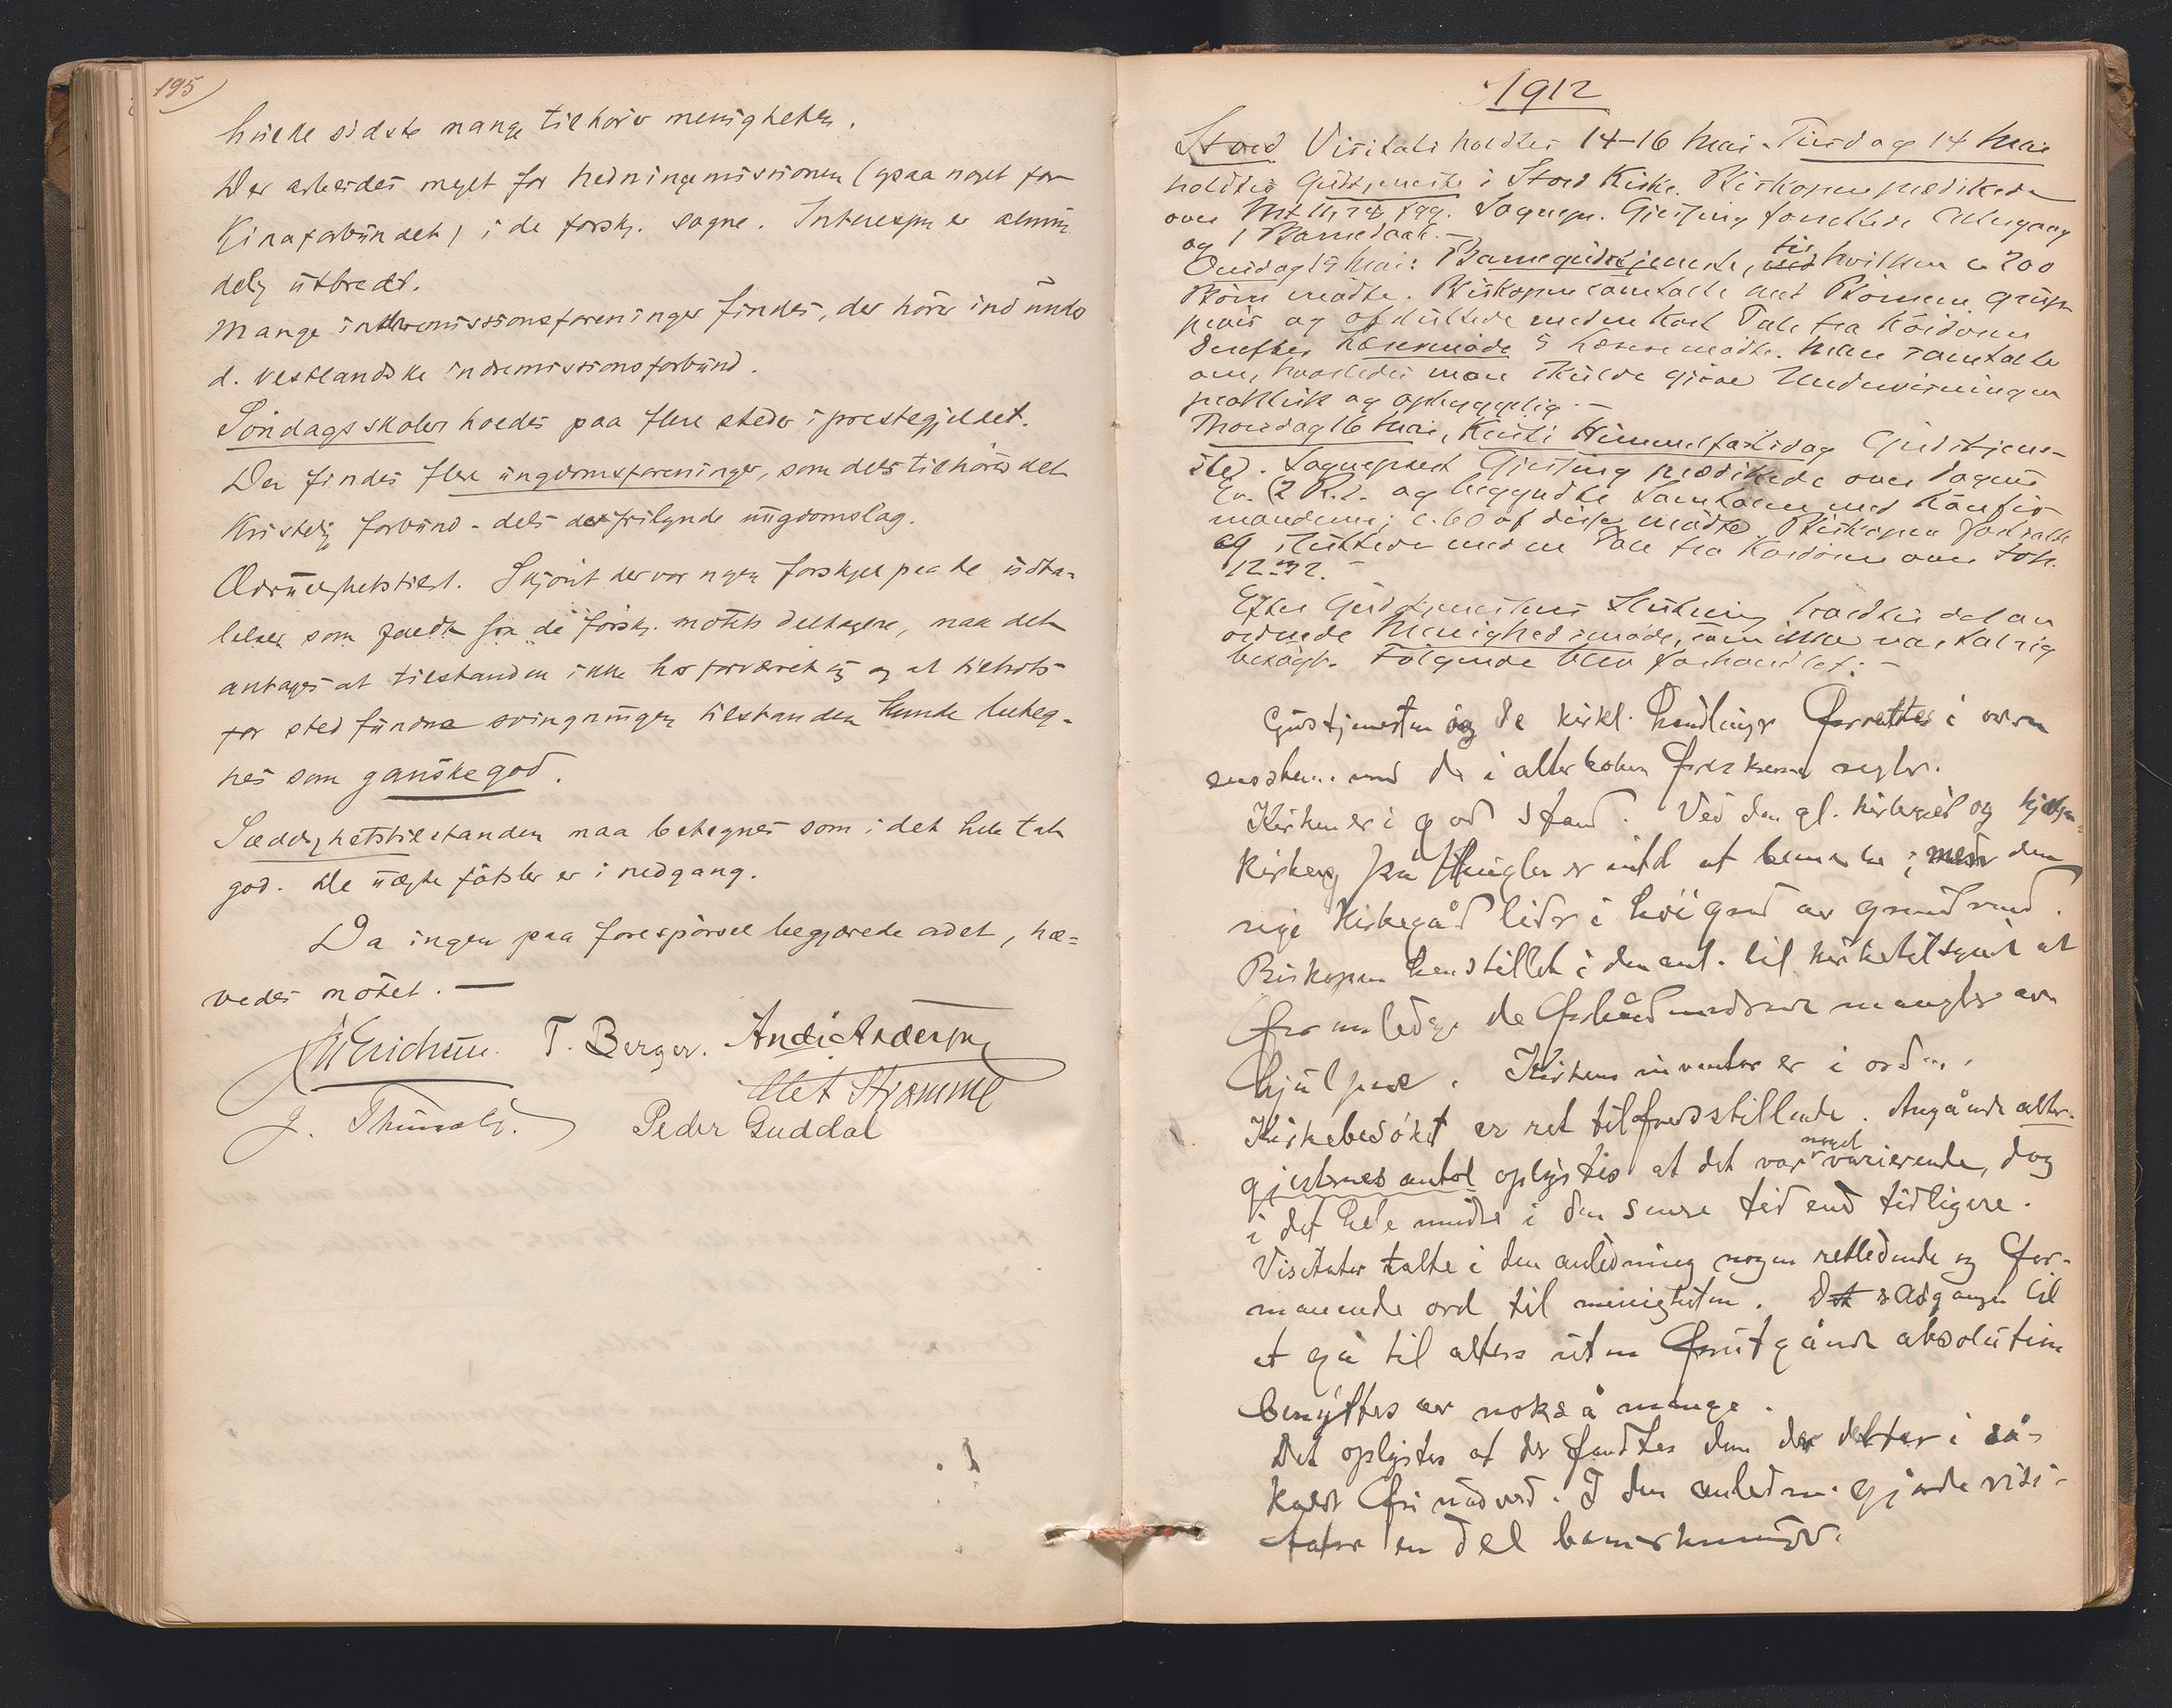 195
hvilke sidste mange tilhører menigheten.
Der arbeides meget for hedningemissionen (ogsaa noget for
Kinaforbundet) i de forsk. sogne. Interessen er almin
delig utbredt.
Mange indremissionsforeninger findes, der hører ind under
d. vestlandske indremissionsforbund.
Søndagsskoler holdes paa flere steder i prestegjeldet.
Der findes flere ungdomsforeninger, som dels tilhører det
Kristelig forbund - dels de frilynde ungdomslag.
Ædruelighetstilst. Skjønt der var nogen forskjel paa de udta-
lelser som faldt fra de forsk. møtets deltagere, maa det
antages at tilstanden ikke har forværret sig og at tiltrods
for sted fundne svingninger tilstanden kunde beteg-
nes som ganske god.
Sædelighetstilstanden maa betegnes som i det hele tat
god. De uægte fødsler er i nedgang.
Da ingen paa forespørsel begjærede ordet, hæ=
vedes møtet. —
Erichsen. T. Berger. Andr. Andersen
Strømme
J. Peder Guddal
1912
Stord Visitats holdtes 14-16 Mai. Tirsdag 14 Mai
holdtes Gudstjeneste i Stord Kirke. Biskopen prædikede
over Mt 11, 28, fgg. Sognepr. Gjessing forrettede Altergang
og 1 Barnedaab. -
Onsdag 15 Mai: Barnegudstjeneste, til hvilken c. 200
Børn mødte. Biskopen samtalte med Børnene grup
pevis og afsluttede med en kort Tale fra Kordøren
Derefter Læremøde 5 Lærere mødte. Man samtalte
om, hvorledes man skulde gjøre Undervisningen
praktisk og opbyggelig. -
Thorsdag 16 Mai, Kristi Himmelfartsdag Gudstjene-
ste. Sogneprest Gjessing prædikede over Dagens
Ev. (2 R.). og begyndte Samtalen med Konfir
manderne; c. 60 af disse mødte. Biskopen fortsatte
og sluttede med en Tale fra Kordøren over Joh.
12.32. -
Efter Gudstjenestens Slutning holdtes det an
ordnede Menighedsmøde, som ikke var talrig
besøgt. Følgende blev forhandlet: -
Gudstjenesten og de kirkl. handlinger forrettes i overen
sstem. med de i alterboken foreskrevne regler.
Kirken er i god stand. Ved den gl. kirkegård og hjælpe-
kirkeg på Huglen er intet at bemerke; men den
nye Kirkegård lider i høi grad av grundvand.
Biskopen henstillet i den anl. til kirketilsynet at
foranledige de forhåndenværende mangler av
hjulpne. Kirkens inventar er i orden.
Kirkebesøket er ret tilfredsstillende. Angående alter-
gjesternes antal oplystes at det var noget varierende, dog
i det hele mindre i den senere tid end tidligere.
Visitator talte i den anledning nogen retledende og for-
manende ord til menigheten. Adgangen til
at gå til alters uten forutgående absolution
benyttes av nokså mange.
Det oplystes at der fandtes dem der deltar i så-
kaldt fri nadverd. I den anledn. gjorde visi-
tator en del bemerkninger.